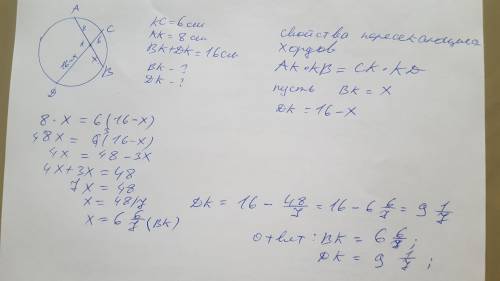 A
8
C
6
K
x
16-x
B
D
KC=6см
AK=8см
BK+DK=16см
BK-?
DK-?
свойства пересекающихся
хордов
AK•KB=CK•KD
пусть BK=X
DK=16-X
8·x=6(16-x)
4x=48-3x
4x+3x=48
7x=48
x=48/7
x=6 6/7 (BK)
DK=16-48/7=16-6 6/7=9 1/7
ответ: BK=6 6/7;
DK=9 1/7;